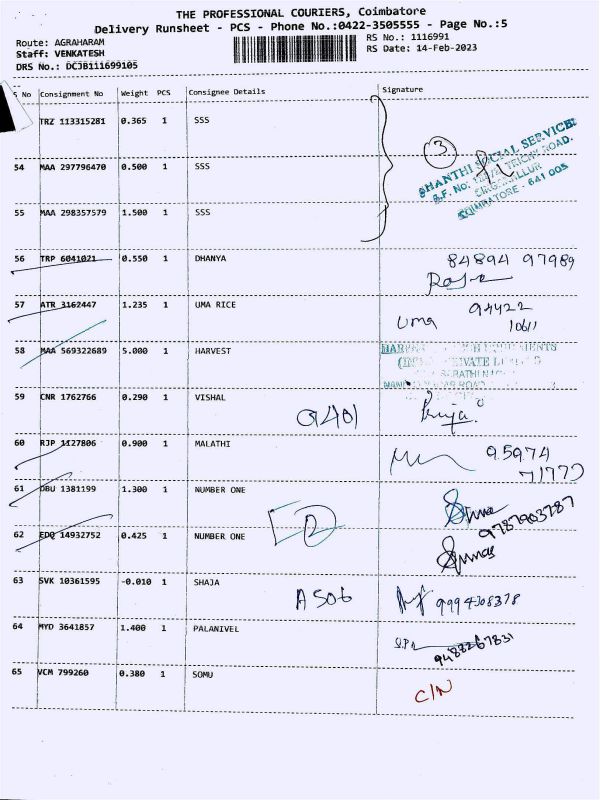 THE PROFESSIONAL COURIERS, Coimbatore
Delivery Runsheet - PCS - Phone No.:0422-3505555 - Page No.:5
Route: AGRAHARAM
RS No.: 1116991
Staff: VENKATESH
RS Date: 14-Feb-2023
DRS No.: DCJB111699105
S No Consignment No Weight PCS Consignee Details Signature
TRZ 113315281 0.365 1 SSS
3
SHANTHI SOCIAL SERVICES
TRICHY ROAD.
COIMBATORE - 641 005
54 MAA 297796470 0.500 1 SSS
55 MAA 298357579 1.500 1 SSS
56 TRP 6041021 0.550 1 DHANYA 84894 97989
57 ATR 3162447 1.235 1 UMA RICE Uma 94422
10611
58 MAA 569322689 5.000 1 HARVEST
59 CNR 1762766 0.290 1 VISHAL G401
60 RJP 1127806 0.900 1 MALATHI 95974
71773
61 DBU 1381199 1.300 1 NUMBER ONE 9787903787
62 EDQ 14932752 0.425 1 NUMBER ONE D
63 SVK 10361595 -0.010 1 SHAJA A506 9994308378
64 MYD 3641857 1.400 1 PALANIVEL 9488267831
65 VCM 799260 0.380 1 SOMU C/N